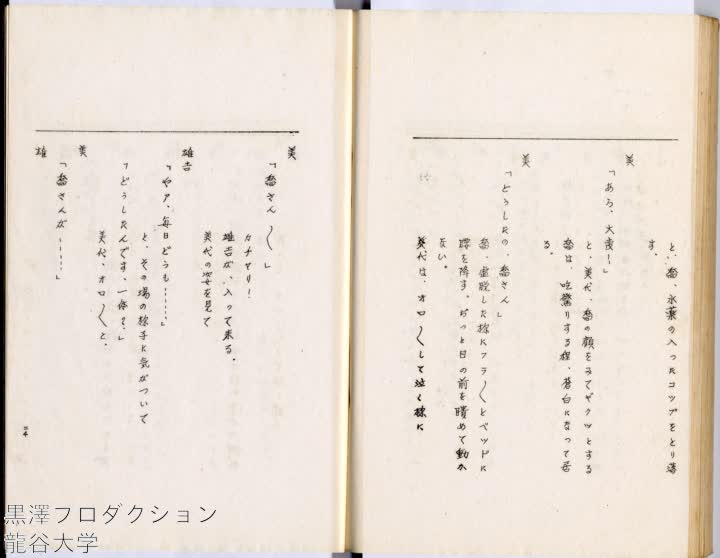 と、喬、氷葉の入ったコップをとり落
す。
美
「あら、大変!」
と、美代、喬の顔をみてギクッとする
喬は、吃驚りする程、蒼白になって居
る。
美
「どうしたの、喬さん」
喬、虚脱した様にフラ〱とベッドに
腰を降す。ぢっと目の前を瞶めて動か
ない。
美代は、オロ〱して泣く様に
美
「喬さん〱」
カチャリ!
雄吉が、入って来る。
美代の姿を見て
雄吉
「やア、毎日どうも……」
と、その場の様子に気がついて
「どうしたんです、一体え」
美代、オロ〱と、
美
「喬さんが……」
雄
黒澤プロダクション
龍谷大学